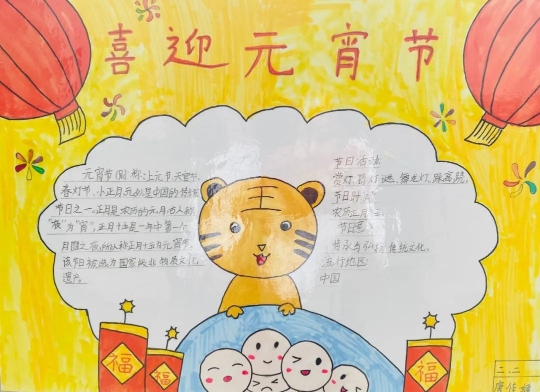 喜迎元宵节
元宵节 又称:上元节、天官节、
春灯节、小正月、元夕是中国的传统
节日之一。正月是农历的元月,古人称
"夜"为"宵",正月十五是一年中第一个
月圆之夜,所以称正月十五为元宵节。
该节日被选为国家级非物质文化
遗产。
节日活动:
赏灯、猜灯谜、舞龙灯、踩高跷。
节日时
农历正月
节日
传承与 传统文化。
流行地区
中国
王
福
福
福
二.二